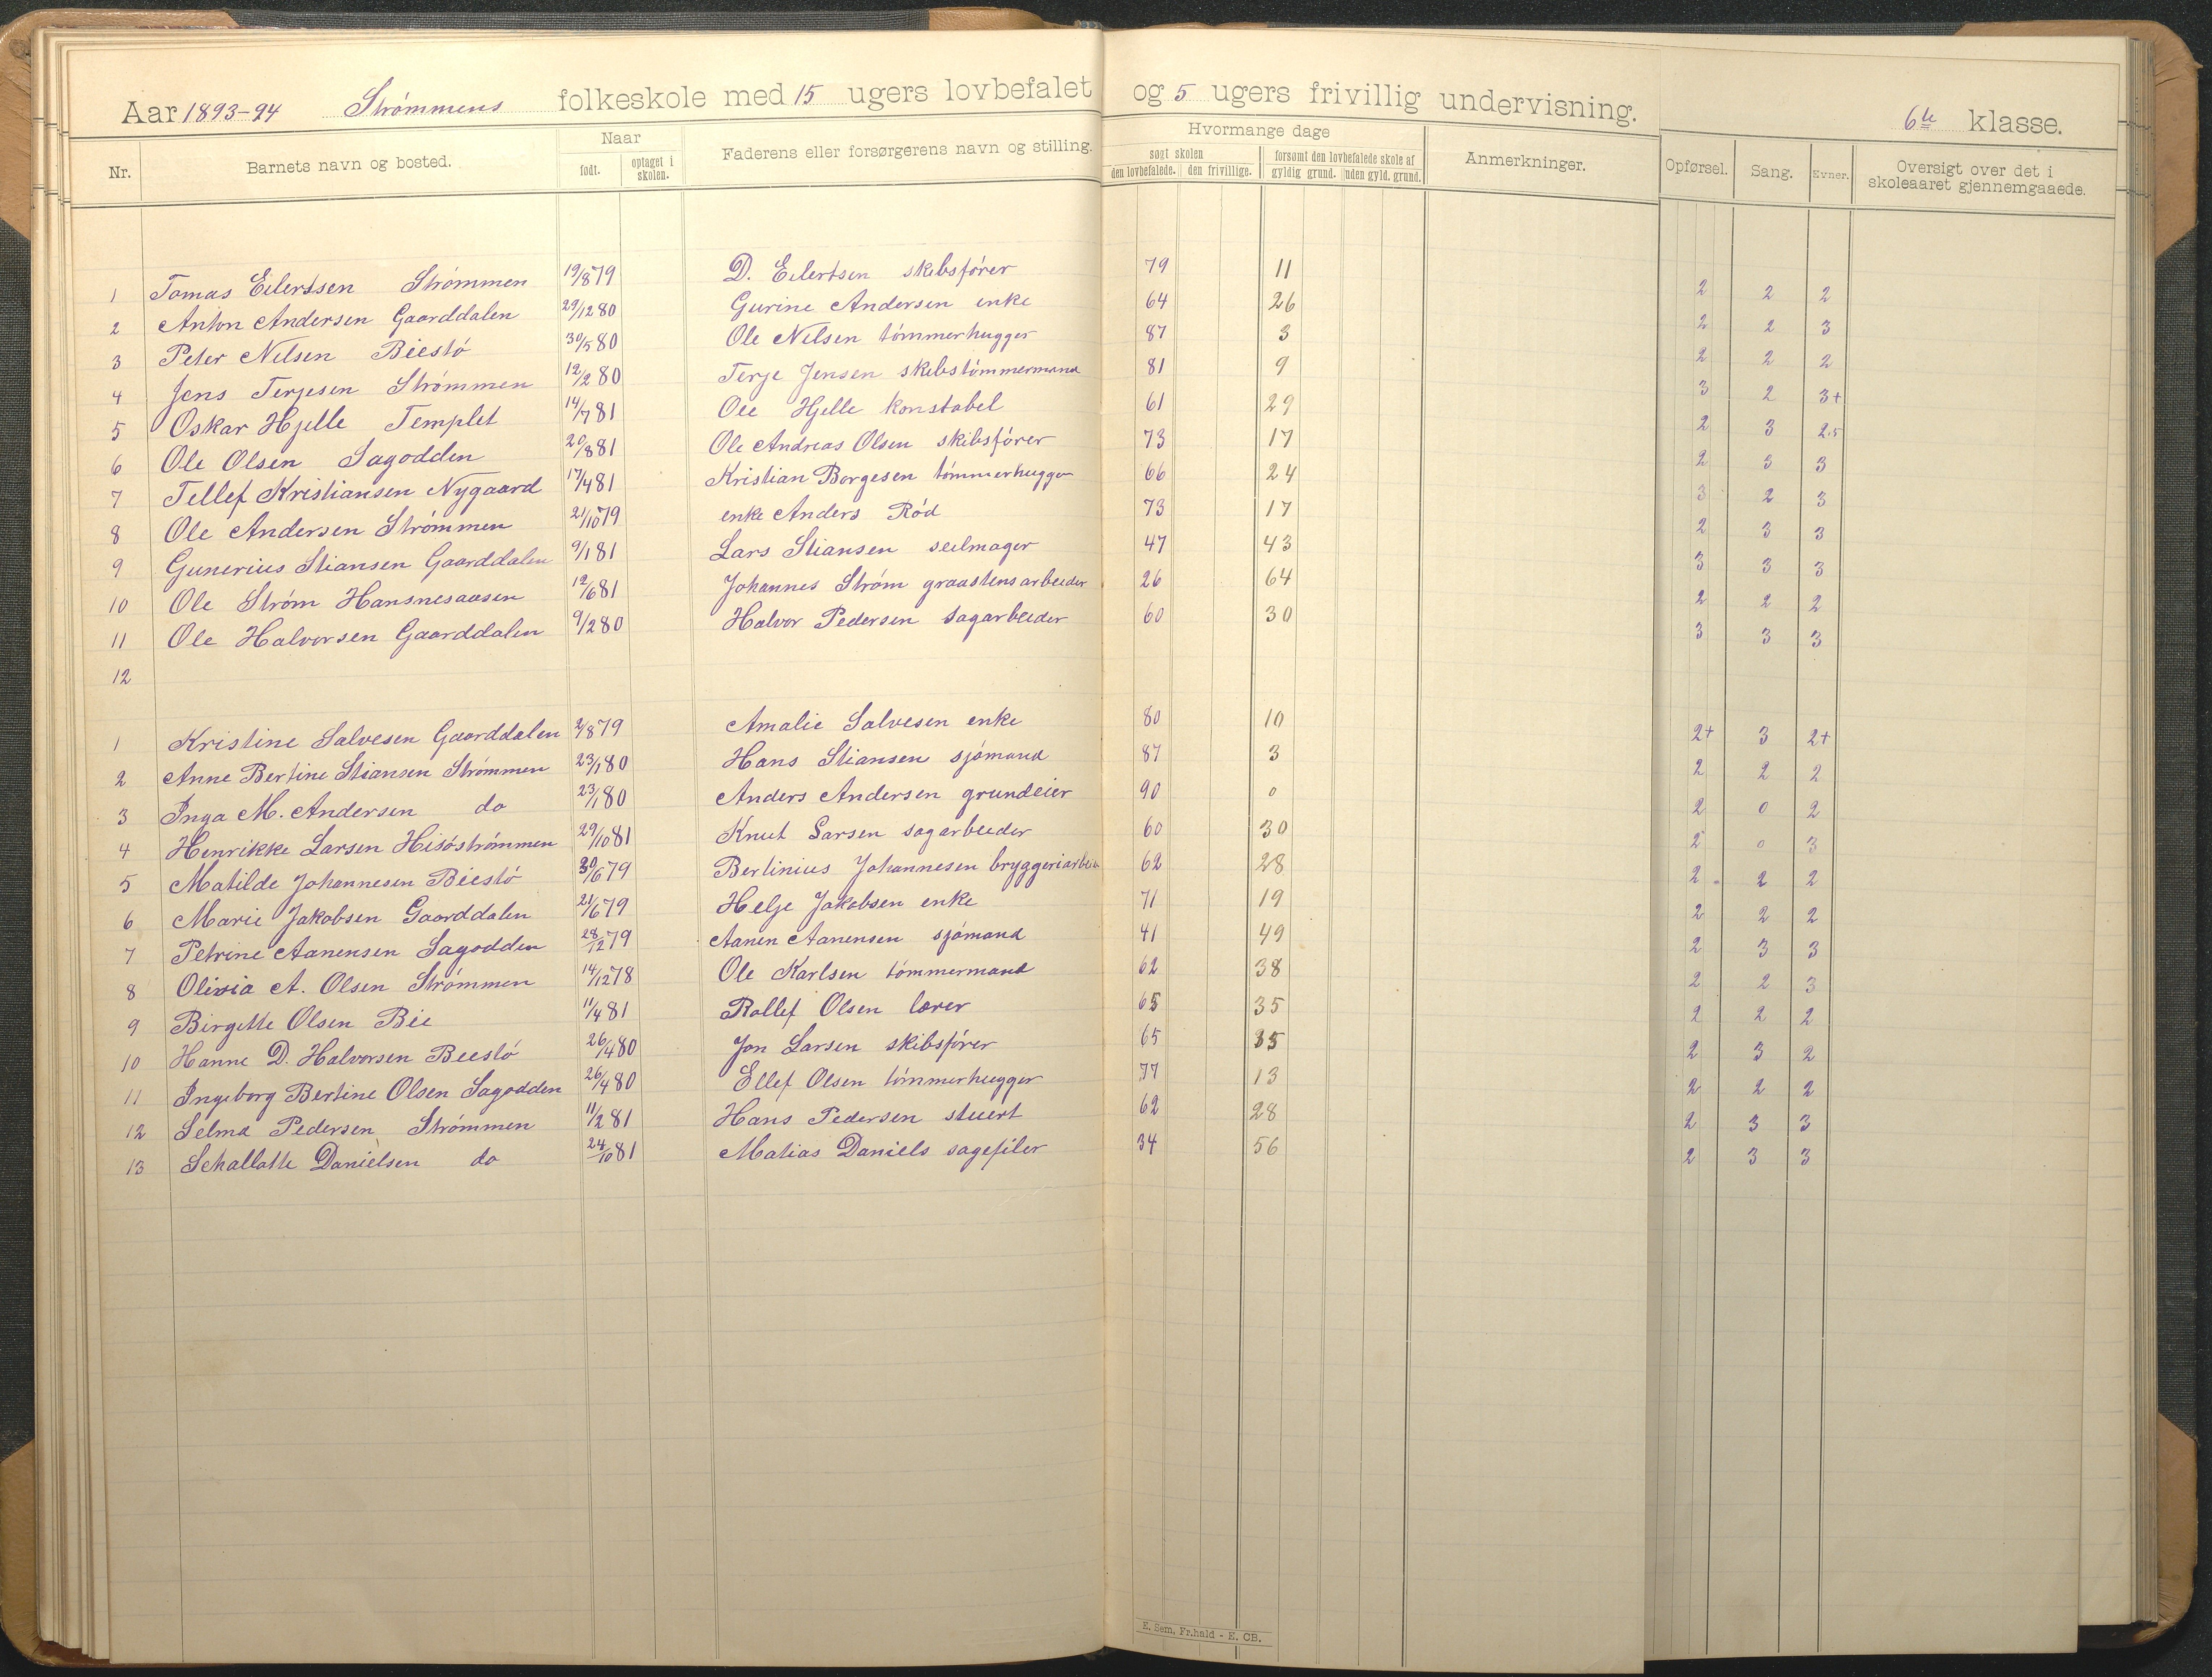 Aar 1893-94 Strømmens folkeskole med 15 ugers lovbefalet og 5 ugers frivillig undervisning. 6te klasse.
Nr. Barnets navn og bosted. Naar født. optaget i skolen. Faderens eller forsørgerens navn og stilling. Hvormange dage søgt skolen den lovbefalede. den frivillige. forsømt den lovbefalede skole af gyldig grund. uden gyld. grund. Anmerkninger. Opførsel. Sang. Evner. Oversigt over det i skoleaaret gjennemgaaede.
1 Tomas Eilertsen Strømmen 19/8 79 D. Eilertsen skibsfører 79 11 2 2 2
2 Anton Andersen Gaarddalen 29/12 80 Gurine Andersen enke 64 26 2 2 3
3 Peter Nilsen Biestø 30/5 80 Ole Nilsen tømmerhugger 87 3 2 2 2
4 Jens Terjesen Strømmen 12/2 80 Terje Jensen skibstømmermand 81 9 3 2 3+
5 Oskar Hjelle Templet 14/7 81 Ole Hjelle konstabel 61 29 2 3 2.5
6 Ole Olsen Sagodden 20/8 81 Ole Andreas Olsen skibsfører 73 17 2 3 3
7 Tellef Kristiansen Nygaard 17/4 81 Kristian Borgesen tømmerhugger 66 24 3 2 3
8 Ole Andersen Strømmen 21/10 79 enke Anders Rød 73 17 2 3 3
9 Gunerius Stiansen Gaarddalen 9/1 81 Lars Stiansen seilmager 47 43 3 3 3
10 Ole Strøm Hansnesaasen 12/6 81 Johannes Strøm graastensarbeider 26 64 2 2 2
11 Ole Halvorsen Gaarddalen 9/2 80 Halvor Pedersen sagarbeider 60 30 3 3 3
12
1 Kristine Salvesen Gaarddalen 2/8 79 Amalie Salvesen enke 80 10 2+ 3 2+
2 Anne Bertine Stiansen Strømmen 23/1 80 Hans Stiansen sjømand 87 3 2 2 2
3 Inga M. Andersen do 23/1 80 Anders Andersen grundeier 90 0 2 0 2
4 Henrikke Larsen Hisøstrømmen 29/10 81 Knut Larsen sagarbeider 60 30 2 0 3
5 Matilde Johannesen Biestø 20/6 79 Bertinius Johannesen bryggeriarbei 62 28 2 2 2
6 Marie Jakobsen Gaarddalen 21/6 79 Helje Jakobsen enke 71 19 2 2 2
7 Petrine Aanensen Sagodden 28/12 79 Aanen Aanensen sjømand 41 49 2 3 3
8 Olivia A. Olsen Strømmen 14/12 78 Ole Karlsen tømmermand 62 38 2 2 3
9 Birgitte Olsen Bie 11/4 81 Rollef Olsen lærer 65 35 2 2 2
10 Hanne D. Halvorsen Biestø 26/4 80 Jon Larsen skibsfører 65 35 2 3 2
11 Ingeborg Bertine Olsen Sagodden 26/4 80 Ellef Olsen tømmerhugger 77 13 2 2 2
12 Selma Pedersen Strømmen 11/2 81 Hans Pedersen stuert 62 28 2 3 3
13 Schallotte Danielsen do 24/10 81 Matias Daniels sagefiler 34 56 2 3 3
E. Sem, Fr.hald - E. CB.